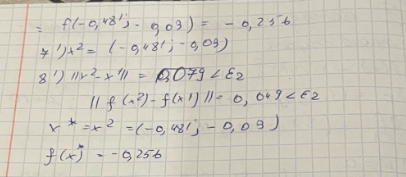 = f(-0,48'; -0,09) = -0,256
7') x² = (-0,48'; -0,09)
8') ||x² - x'|| = 0,079 < ε2
|| f(x²) - f(x') || = 0,049 < ε2
x* = x² = (-0,48'; -0,09)
f(x)* = -0,256